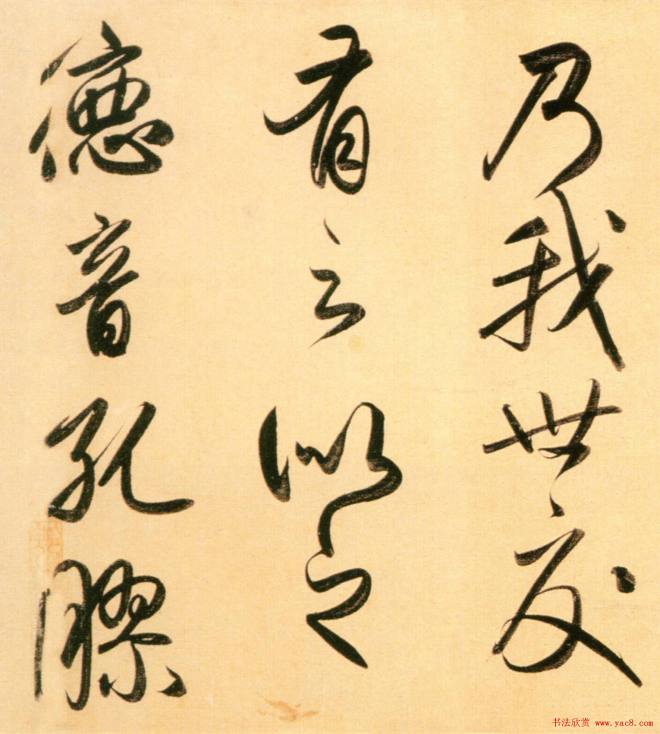 乃我世交
有之似之
德音孔膠
书法欣赏 www.yac8.com